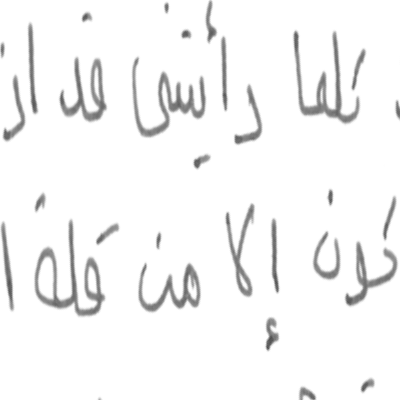 كلما رأيتني قد از
كون إلا من قلة ا